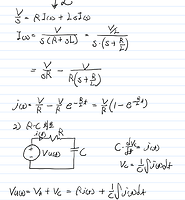 V/S = R I(s) + LS I(s)
I(s) = V/(S(R+SL)) = V/L/(S·(S+R/L))
= V/(SR) − V/(R(S+R/L))
i(t) = V/R − V/R e^(−R/L t) = V/R (1 − e^(−R/L t))
2) R-C
i(t) R
Vu(t) C
C · dVc/dt = i(t)
Vc = 1/C ∫ i(t)dt
Vu(t) = VR + Vc = R i(t) + 1/C ∫ i(t)dt